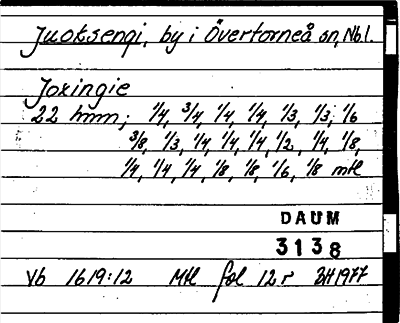 Juoksengi, by i Övertorneå sn, Nbl.
Joxingie
22 hmn; 1/4, 3/4, 1/4, 1/4, 1/3, 1/3, 1/6
3/8, 1/3, 1/4, 1/4, 1/4, 1/2, 1/4, 1/8,
1/4, 1/4, 1/4, 1/8, 1/8, 1/6, 1/8 mtl
DAUM
3138
Vb 1619:12 Mtl fol 12r BH1977